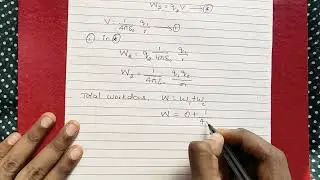 W₂ = q₂V → ✱
V = 1/4πε₀ q₁/r → ①
① in ✱
W₂ = q₂ 1/4πε₀ q₁/r
W₂ = 1/4πε₀ q₁q₂/r
Total workdone, W = W₁ + W₂
W = 0 + 1/4